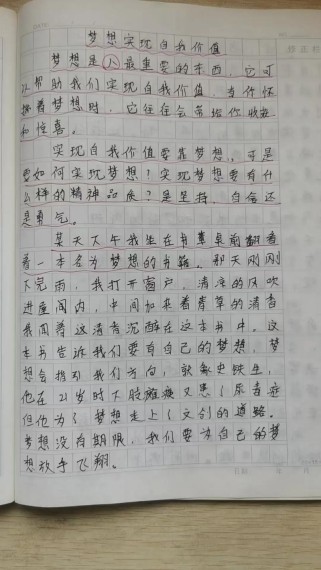 梦想实现自我价值
梦想是人最重要的东西，它可
以帮助我们实现自我价值，当你怀
揣着梦想时，它往往会带给你收获
和惊喜。
实现自我价值要靠梦想，可是
要如何实现梦想？实现梦想要有什
么样的精神品质？是坚持、自信还
是勇气。
某天下午我坐在书桌前翻看
着一本名为梦想的书籍。那天刚刚
下完雨，我打开窗户，清凉的风吹
进屋阁内，中间加夹着青草的清香
我闻着这清香沉醉在这本书中。这
本书告诉我们要有自己的梦想，梦
想会指引我们方向，就像史铁生，
他在21岁时下肢瘫痪又患了尿毒症
但他为了梦想走上了文创的道路。
梦想没有期限，我们要为自己的梦
想放手飞翔。